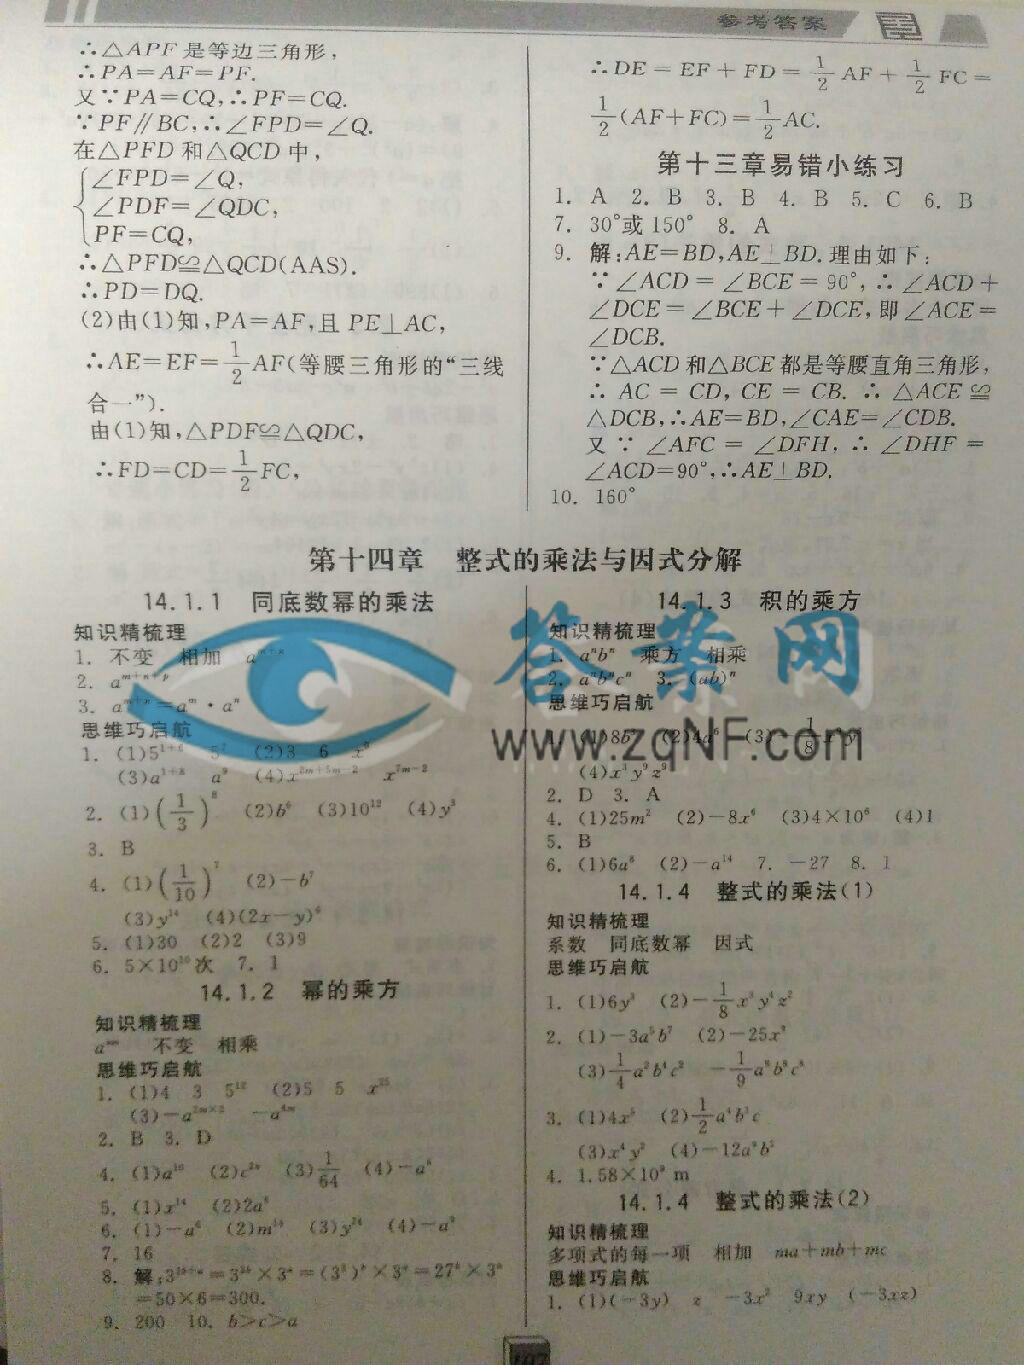 参考答案
∴△APF是等边三角形,
∴PA=AF=PF.
又∵PA=CQ,∴PF=CQ.
∵PF∥BC,∴∠FPD=∠Q.
在△PFD和△QCD中,
∠FPD=∠Q,
∠PDF=∠QDC,
PF=CQ,
∴△PFD≌△QCD(AAS).
∴PD=DQ.
(2)由(1)知,PA=AF,且PE⊥AC,
∴AE=EF=1/2AF(等腰三角形的“三线
合一”).
由(1)知,△PDF≌△QDC,
∴FD=CD=1/2FC,
∴DE=EF+FD=1/2AF+1/2FC=
1/2(AF+FC)=1/2AC.
第十三章易错小练习
1. A 2. B 3. B 4. B 5. C 6. B
7. 30°或150° 8. A
9. 解:AE=BD,AE⊥BD.理由如下:
∵∠ACD=∠BCE=90°,∴∠ACD+
∠DCE=∠BCE+∠DCE,即∠ACE=
∠DCB.
∵△ACD和△BCE都是等腰直角三角形,
∴AC=CD,CE=CB.∴△ACE≌
△DCB,∴AE=BD,∠CAE=∠CDB.
又∵∠AFC=∠DFH,∴∠DHF=
∠ACD=90°,∴AE⊥BD.
10. 160°
第十四章 整式的乘法与因式分解
14.1.1 同底数幂的乘法
知识精梳理
1. 不变 相加
2. a^(m+n+p)
3. a^(m+n)=a^m·a^n
思维巧启航
1. (1) 5^7 (2)3 6
(3) a^9 (4) x^(7m-2)
2. (1)(1/3)^8 (2)b^6 (3)10^12 (4)y^3
3. B
4. (1)(1/10)^7 (2)-b^7
(3)y^14 (4)(2x-y)^6
5. (1)30 (2)2 (3)9
6. 5×10^10次 7. 1
14.1.2 幂的乘方
知识精梳理
a^mn 不变 相乘
思维巧启航
1. (1)4 3 5^12 (2)5 5 x^25
(3)-a^(2m×2) -a^4m
2. B 3. D
4. (1) (2) (3)1/64 (4)
5. (1)x^14 (2)2a^8
6. (1)-a^6 (2)m^14 (3)y^24 (4)-a^9
7. 16
8. 解:
=50×6=300.
9. 200 10. b>c>a
14.1.3 积的乘方
知识精梳理
1. a^n b^n 乘方 相乘
2. a^n b^n c^n 3. (ab)^n
思维巧启航
1. (1)8b^3 (2)4a^6 (3)
(4)x^3y^9z^9
2. D 3. A
4. (1)25m^2 (2)-8x^6 (3)4×10^6 (4)1
5. B
6. (1)6a^8 (2)-a^14 7. -27 8. 1
14.1.4 整式的乘法(1)
知识精梳理
系数 同底数幂 因式
思维巧启航
1. (1)6y^3 (2)-1/8x^3y^4z^2
2. (1)-3a^5b^7 (2)
(3)1/4a^2b^4c^2
3. (1)4x^5 (2)1/2a^4b^3c
(3)x^4y^2 (4)
4. 1.58×10^9 m
14.1.4 整式的乘法(2)
知识精梳理
多项式的每一项 相加 ma+mb+mc
思维巧启航
1. (1)(-3y) z -3x^2 9xy (-3xz)
答案网
www.zqNF.com